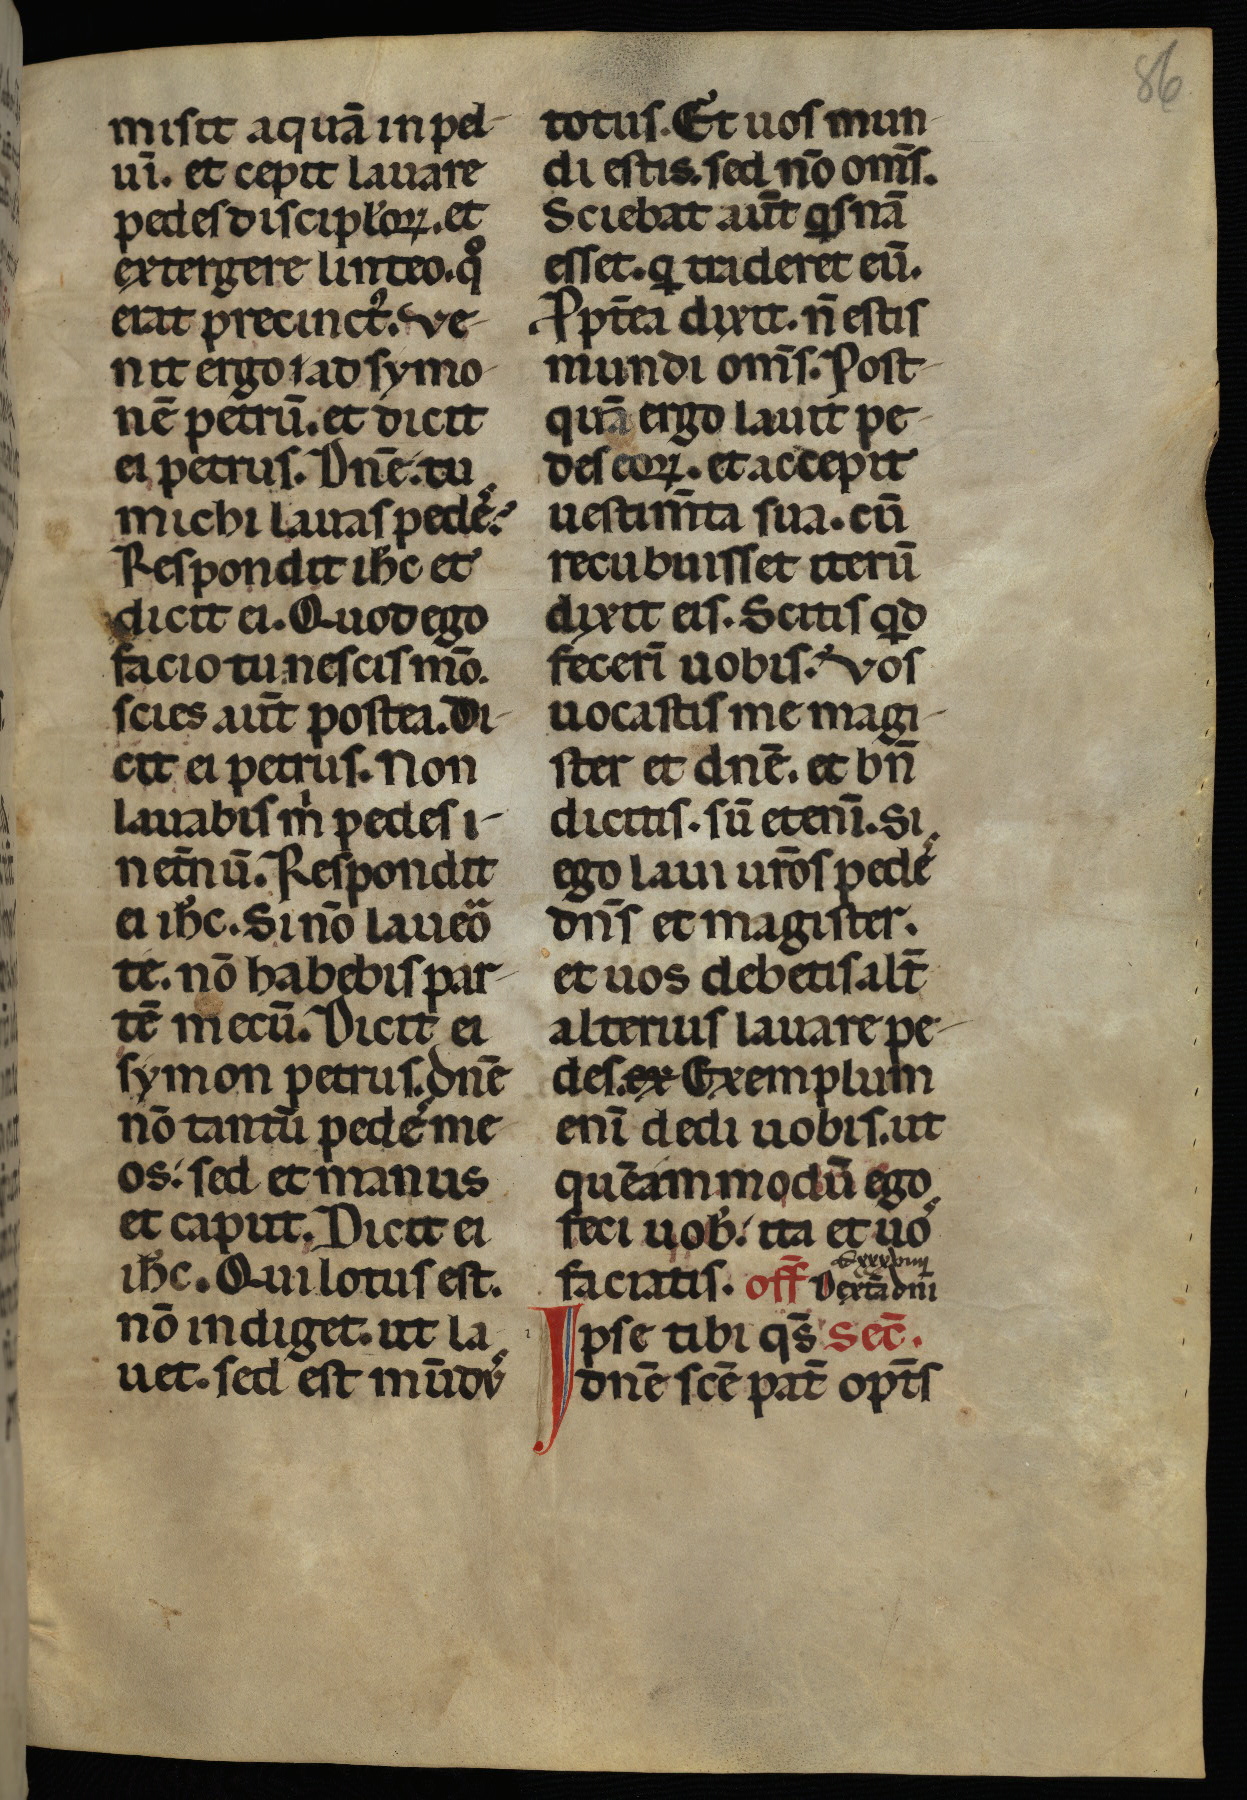 86
misit aquā in pel-
uī. et cepit lauare
pedes discipłoꝝ. et
extergere linteo. qͦ
erat precinctꝰ. Ve-
nit ergo ad symo-
nē petrū. et dicit
ei petrus. Dnē. tu
michi lauas pedeˢ?
Respondit ih̄c et
dicit ei. Quod ego
facio tu nescis mō.
scies aūt postea. Di-
cit ei petrus. Non
lauabis m̍ pedes i-
net̄nū. Respondit
ei ih̄c. Si nō lauēo
te. nō habebis par-
tē mecū. Dicit ei
symon petrus. dnē
nō tantū pedeˢ me
os. sed et manus
et caput. Dicit ei
ih̄c. Qui lotus est.
nō indiget. ut la
uet. sed est mūdꝰ
totus. Et uos mun-
di estis. sed nō om̄s.
Sciebat aūt qͥsnā
esset. qͥ traderet eū.
Ꝓpt̄ea dixit. n̄ estis
mundi om̄s. Post-
quā ergo lauit pe-
des eoꝝ. et accepit
uestim̄ta sua. cū
recubuisset iterū
dixit eis. Scitis qͥd
fecerī uobis? Vos
uocastis me magi-
ster et dnē. et bn̄
dicitis. sū etenī. Si
ego laui ur̄os pedeˢ
dn̄s et magister.
et uos debetis alt̄
alterius lauare pe-
des. ex Exemplum
enī dedi uobis. ut
quēammodū ego
feci uob̄. ita et uoˢ
faciatis. off̄ Dext̄a dn̄i
Ipse tibi qs̄ Sec̄.
dnē scē pat̄ opt̄s